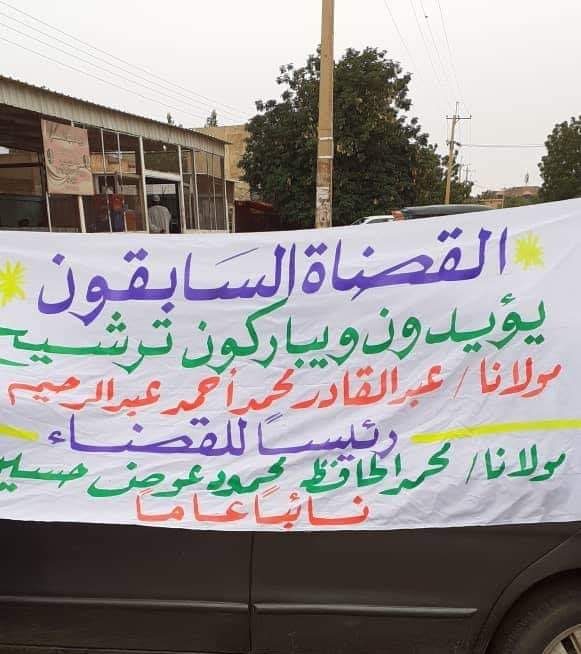 القضاة السابقون
يؤيدون ويباركون ترشيح
مولانا/ عبدالقادر محمد أحمد عبدالرحيم
رئيساً للقضاء
مولانا/ محمد الحافظ محمود عوض حسين
نائباً عاماً